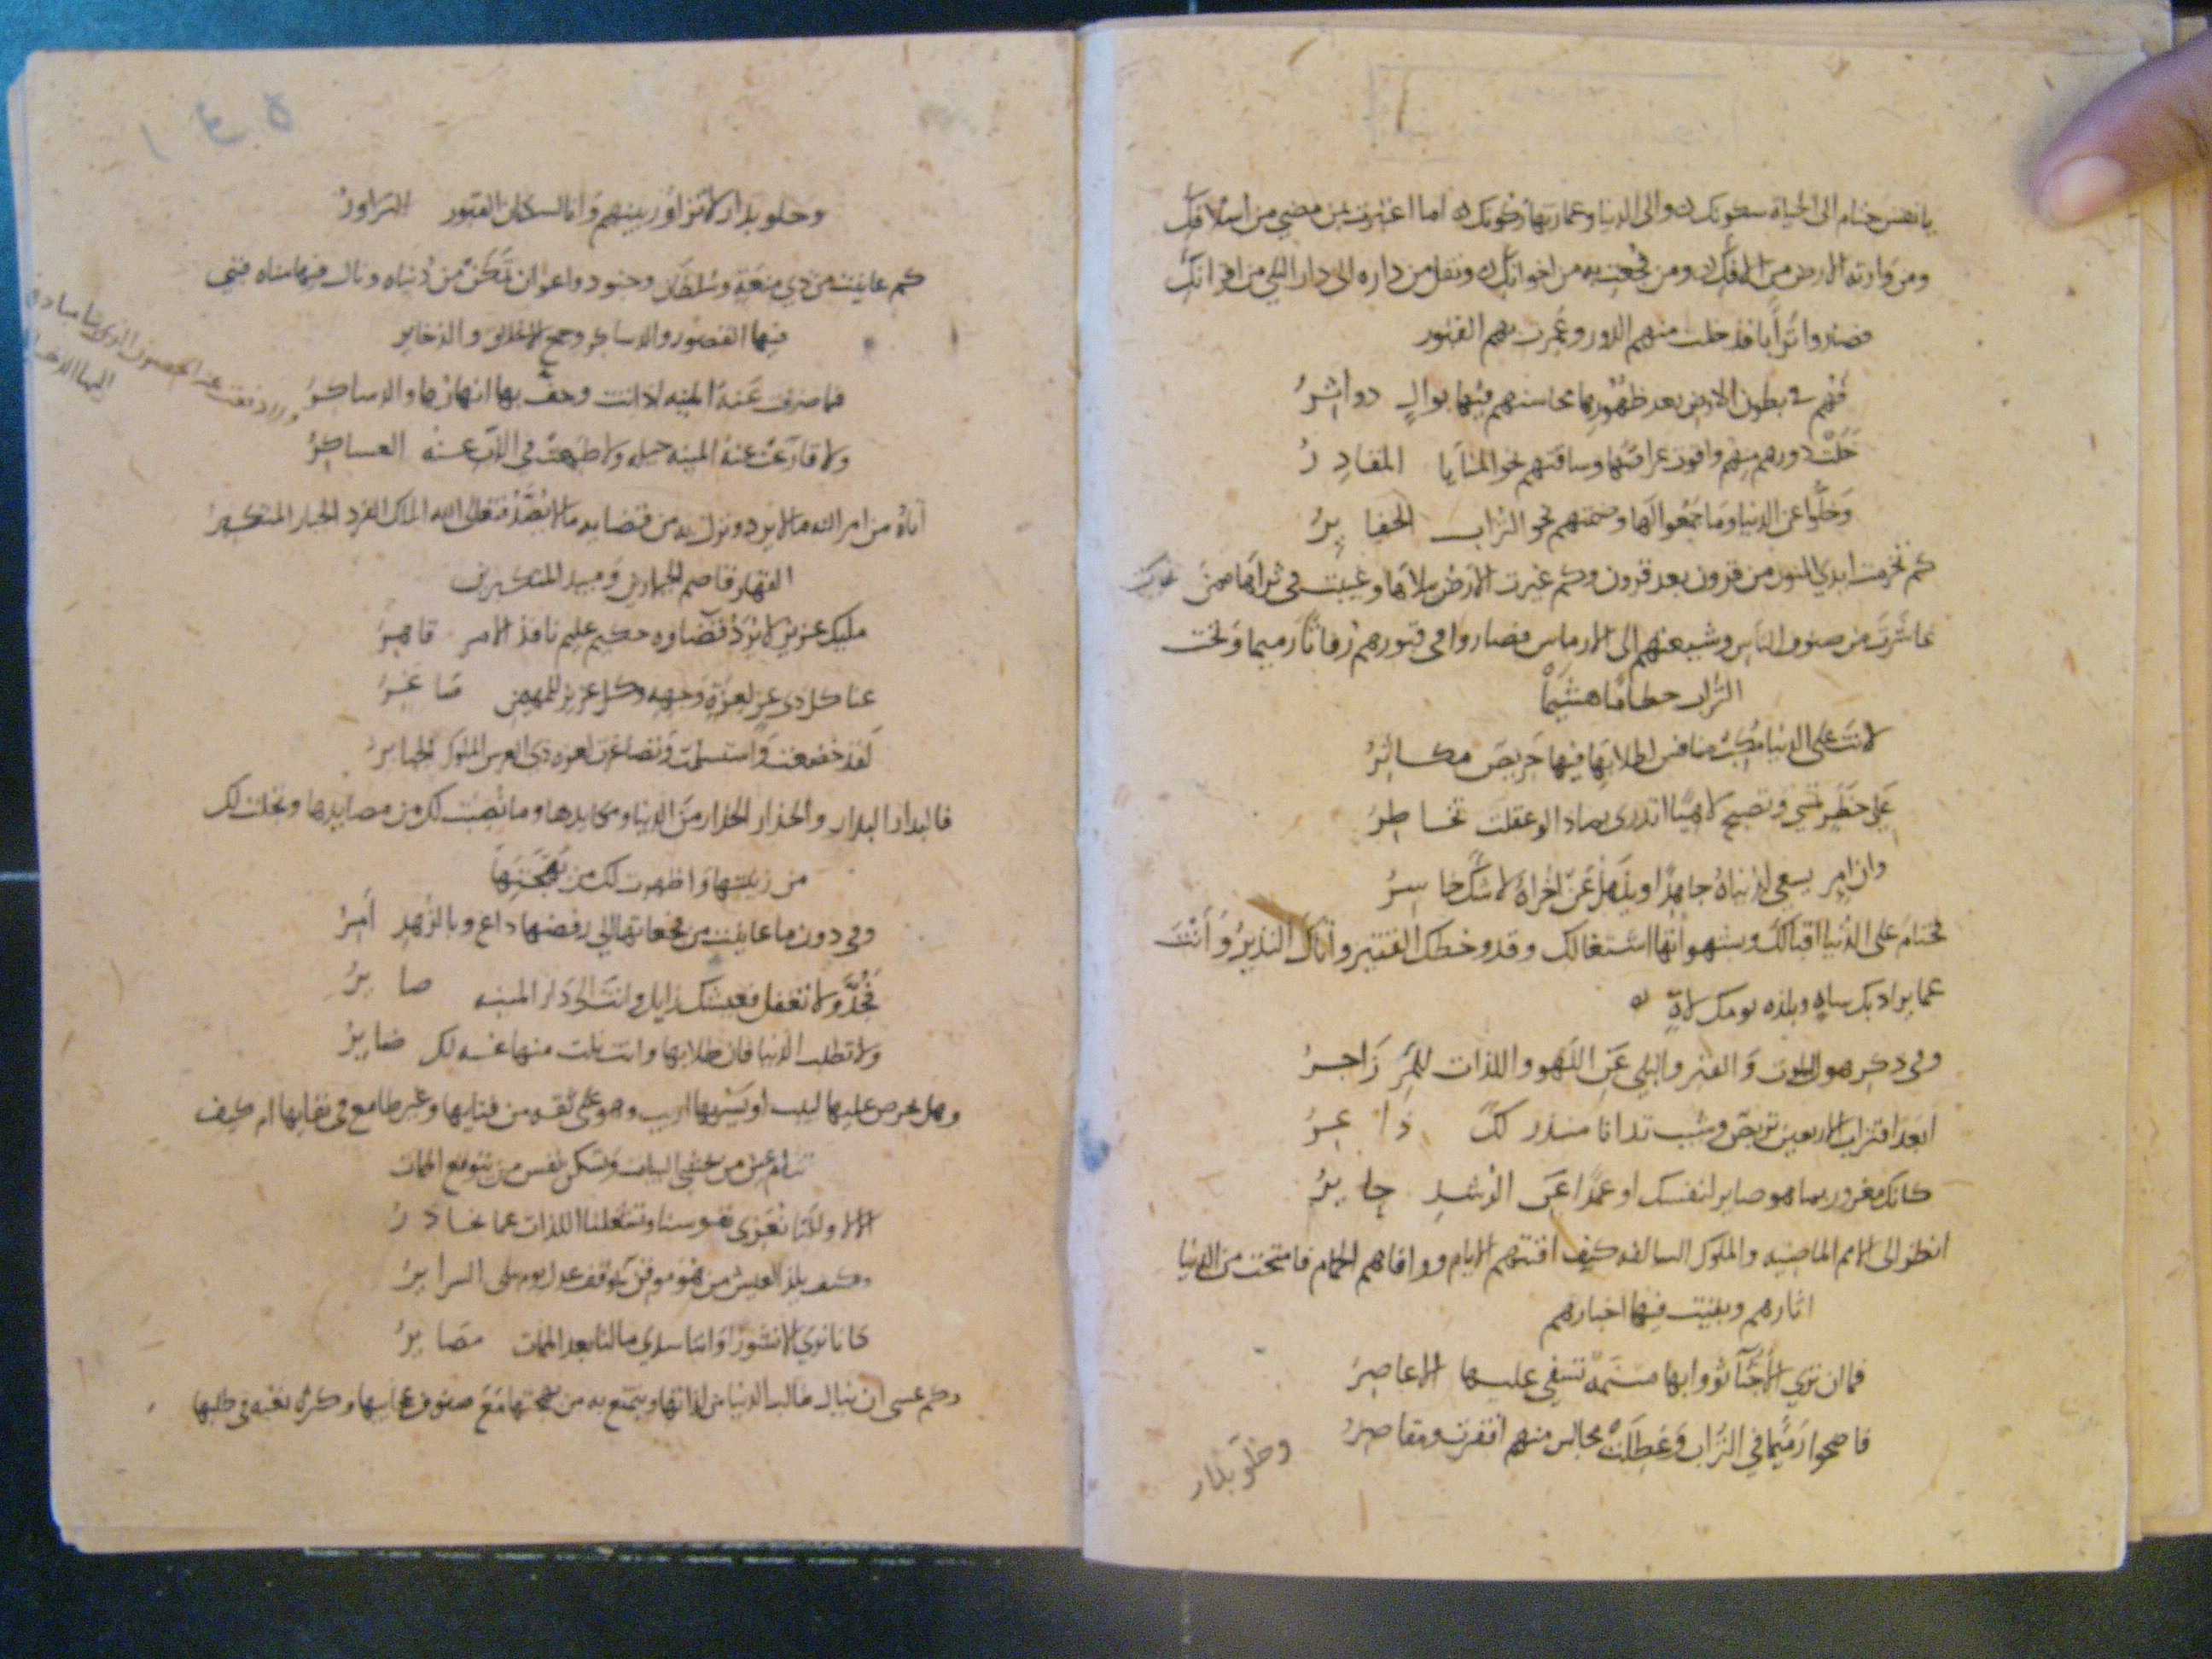 يا نفس حتام الى الحياة سكونك والى الدنيا وعمارتها ركونك اما اعتبرت بمن مضى من اسلافك
ومن وارته الارض من الافك ومن فجعت به من اخوانك ونقل من داره الى دار البلى من اقرانك
فصاروا ترابا قد خلت منهم الدور وعمرت بهم القبور
فهم في بطون الارض بعد ظهورها محاسنهم فيها بوالٍ دواثرُ
خَلَتْ دورهم منهم واقوت عراصها وساقتهم نحو المنايا المقادرُ
وَخلَّوا عن الدنيا وَما جمّعوا لَها وضمتهم نحو التراب الحفايرُ
كم تخرمت ايدي المنون من قرون بعد قرون وكم غيرت الارض ببلاها وغيبت في ثراها ممن
عاشرت من صنوف الناس وشيعتهم الى الارماس فصاروا في قبورهم رفاتاً رميما وتحت
التراب حطاماً هشيماً
لانت على الدنيا مكب منافس لطلابها فيها حريص مكاثرُ
على خطر تمسي وتصبح لاهياً اتدرى بماذا لو عقلت تخاطرُ
وان امر يسعى لدنياه جاهداً ويذهل عن اخراه لا شك خاسرُ
فحتام على الدنيا اقبالك وبشهواتها اشتغالك وقد وخطك القتير واتاك النذيرُ وَأنت
عما يراد بك ساهٍ وبلذه يومك لاهٍ
وفى ذكر هول الموت وَالقبر والبلى عَن اللهو واللذات للمرِ زَاجرُ
ابعد اقتراب الاربعين تربص وشيب قذال منذر لكَ ذاعرُ
كانك مغرور بما هو صاير لنفسك او عمداً عَن الرشدِ جايرُ
انظر الى الامم الماضيه والملوك السالفه كيف افنتهم الايام ووافاهم الحمام فامتحت من الدنيا
اثارهم وبقيت فيها اخبارهم
فما ان ترى الا جثاً ثووا بها مسنمة تسفى عليها الاعاصرُ
فاصحوا رَميماً في التراب وَعطلت مجالس منهم اقفرت ومقاصرُ
وحلو بدار
وحلو بدار لا تزاور بينهم وَانا لسكان القبور التزاورُ
كم عاينت من ذي منعةٍ وسُلطان وجنود واعوان تمكّن من دُنياه ونال فيها مناه فبنى
فيها القصور والدساكر وجمع الاعلاق والذخاير
فما صرفت عَنهُ المنيه اذ اتت وحف بها انهارها والدساكرُ
ولا قارَعت عنهُ المنيه حيله ولا طمعت في الذب عنه العساكرُ
اتاهُ من امر الله ما لا يرد ونزل به من قضايه ما لا يُصَدّ فتعالى الله الملك الفرد الجبار المتكبرُ
القهار قاصم الجبارين وَمبيد المتكبرين
مليك عزيز لا يُرَدُ قضاوه حكيم عليم نافذ الامر قاهرُ
عنا كل ذى عز لعزةِ وَجهه وكل عزيز للمهيمن صَاغرُ
لقد خضعت وَاستسلمت وَتضاءلت لعزه ذى العرش الملوك الجبابرُ
فالبدار البدار والحذار الحذار من الدنيا ومكايدها وما نُصِبَت لك من مصايدها وتحلت لك
من زينتها وَاظهرت لك من بهجتِها
وفى دون ما عاينت من فجعاتها الى رفضها داع وبالزهد أمرا
فجُدَّ ولا تغفل فعيشك زايل وانت الى دَار المنيه صايرُ
ولا تطلب الدنيا فان طلابها وان نلت منها غبه لك ضايرُ
وهل يحرص عليها لبيب او يَسّرُ بها اريب وهو على ثقه من فنايها وغير طامع في بقايها ام كيف
تنام عين من يخشى البيات وتسكن نفس من يتوقع الممات
الا لا ولكنا نغرى نفوسنا وتشغلنا اللذات عما نحاذرُ
وكيف يلذ العيش من هُو موقن بموقف عدل يوم تبلى السرايرُ
كانا نرى لا نشور اوَاننا سدى ما لنا بعد الممات مصَايرُ
وكم عسى ان ينال طالب الدنيا من لذاتها ويتمتع به من بهجتها مَعَ صنوف عجايبها وكثره تعبه في طلبها
ولا دفعت عنه الحصون الذى بنا مبادرا